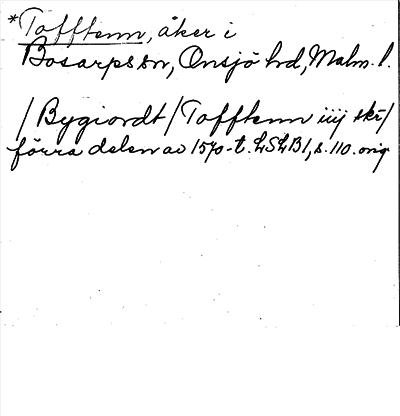 *Tofftenn, åker i
Bosarps sn, Onsjö hd, Malm. l.
/Bygiordt/Tofftenn iiij skr/
förra delen av 1570-t. LSLB1, s. 110. orig